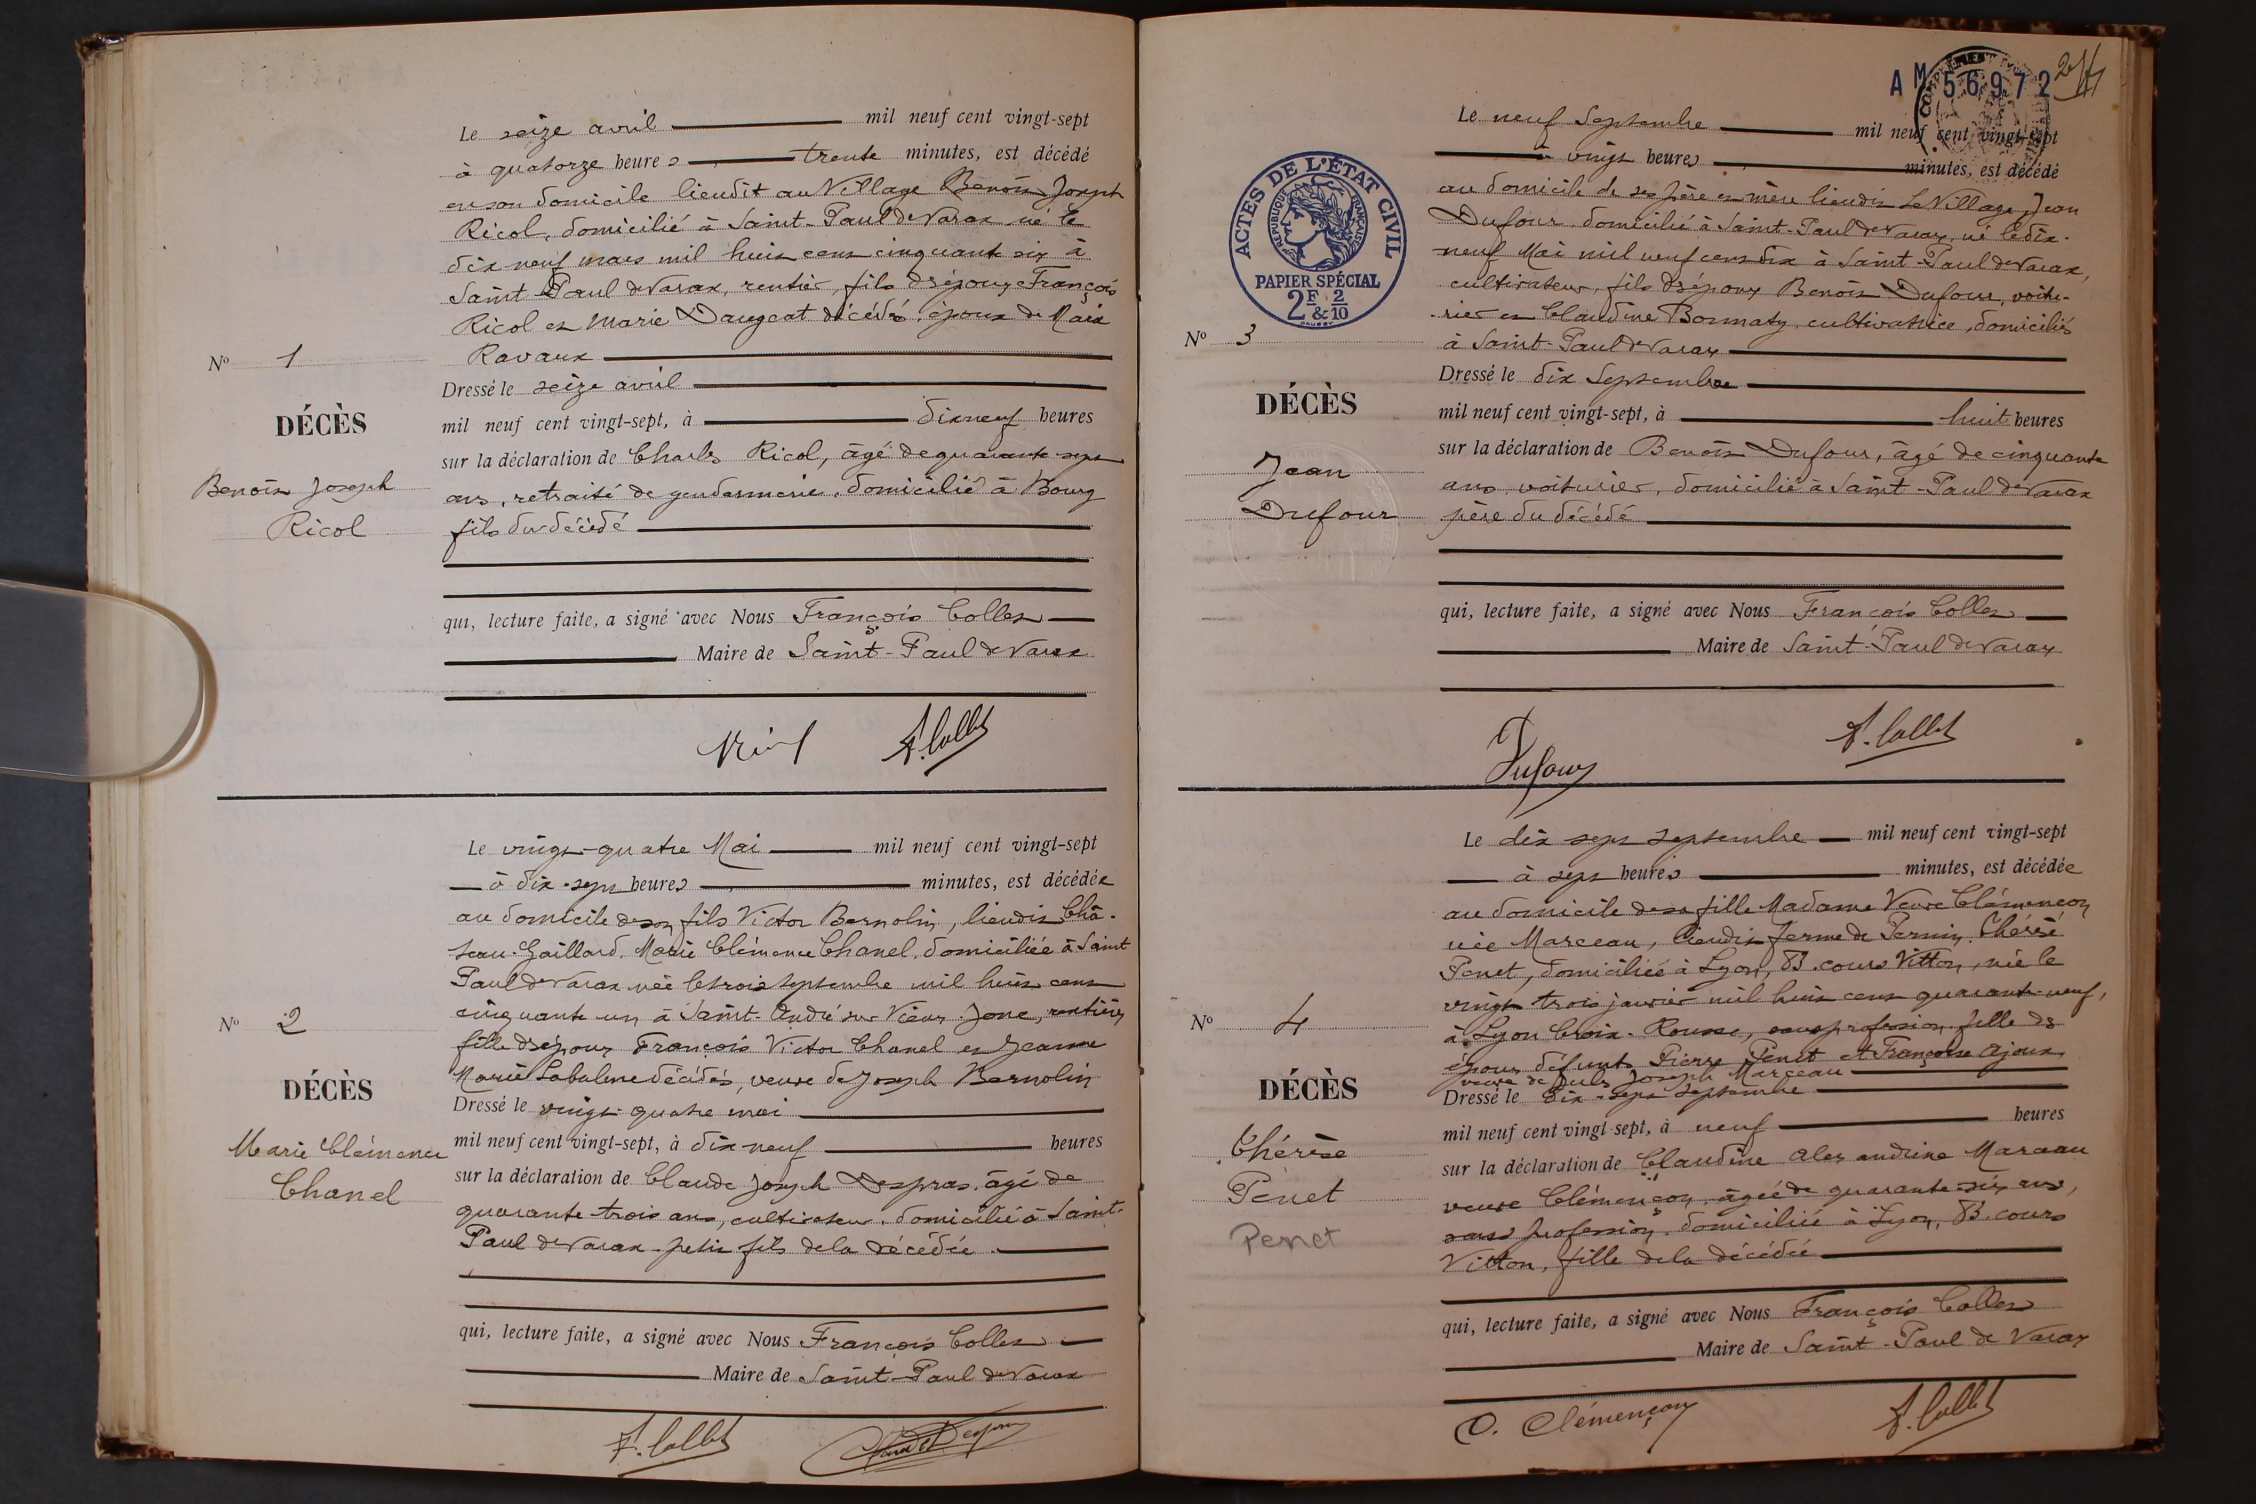 Le seize avril mil neuf cent vingt-sept
à quatorze heures trente minutes, est décédé
en son domicile lieudit au Village Benoît Joseph
Ricol, domicilié à Saint-Paul de Varax né le
dix neuf mars mil huit cent cinquante six à
Saint Paul de Varax, rentier, fils d'époux François
Ricol et Marie Daugeat décédés, époux de Marie
Ravaux
Nº 1
DÉCÈS
Benoît Joseph
Ricol
Dressé le seize avril
mil neuf cent vingt-sept, à dix neuf heures
sur la déclaration de Charles Ricol, âgé de quarante-sept
ans, retraité de gendarmerie, domicilié à Bourg
fils du décédé
qui, lecture faite, a signé avec Nous François Collet
Maire de Saint-Paul de Varax
Ricol F. Collet
Le vingt-quatre Mai mil neuf cent vingt-sept
à dix-sept heures minutes, est décédée
au domicile de son fils Victor Bernolin, lieudit Châ-
teau-Gaillard, Marie Clémence Chanel, domiciliée à Saint
Paul de Varax née le trois septembre mil huit cent
cinquante un à Saint-André sur Vieux Jonc, rentière
fille d'époux François Victor Chanel et Jeanne
Marie Labalme décédés, veuve de Joseph Bernolin
Nº 2
DÉCÈS
Marie Clémence
Chanel
Dressé le vingt-quatre mai
mil neuf cent vingt-sept, à dix neuf heures
sur la déclaration de Claude Joseph Despras, âgé de
quarante-trois ans, cultivateur, domicilié à Saint-
Paul de Varax petit fils de la décédée
qui, lecture faite, a signé avec Nous François Collet
Maire de Saint-Paul de Varax
F. Collet
AM 56972
Le neuf Septembre mil neuf cent vingt-sept
à vingt heures minutes, est décédé
au domicile de ses père et mère lieudit Le Village, Jean
Dufour, domicilié à Saint-Paul de Varax, né le dix-
neuf Mai mil neuf cent dix à Saint-Paul de Varax,
cultivateur, fils d'époux Benoît Dufour, voitu-
rier et Claudine Bonnaty, cultivatrice, domiciliés
à Saint-Paul de Varax
ACTES DE L'ÉTAT CIVIL
RÉPUBLIQUE FRANÇAISE
PAPIER SPÉCIAL
2F & 2/10
Nº 3
DÉCÈS
Jean
Dufour
Dressé le dix Septembre
mil neuf cent vingt-sept, à huit heures
sur la déclaration de Benoît Dufour, âgé de cinquante
ans, voiturier, domicilié à Saint-Paul de Varax
père du décédé
qui, lecture faite, a signé avec Nous François Collet
Maire de Saint-Paul de Varax
Dufour F. Collet
Le dix sept septembre mil neuf cent vingt-sept
à sept heures minutes, est décédée
au domicile de sa fille Madame Veuve Clémençon
née Marceau, lieudit ferme de Pernin, Thérèse
Penet, domiciliée à Lyon, 83 cours Vitton, née le
vingt trois janvier mil huit cent quarante-neuf,
à Lyon Croix-Rousse, sans profession fille de
époux défunts Pierre Penet et Françoise Ajoux
veuve de Jules Joseph Marceau
Nº 4
DÉCÈS
Thérèse
Penet
Penet
Dressé le dix-sept Septembre
mil neuf cent vingt-sept, à neuf heures
sur la déclaration de Claudine Alexandrine Marceau
veuve Clémençon, âgée de quarante-six ans,
sans profession, domiciliée à Lyon, 83 cours
Vitton, fille de la décédée
qui, lecture faite, a signé avec Nous François Collet
Maire de Saint-Paul de Varax
C. Clémençon F. Collet